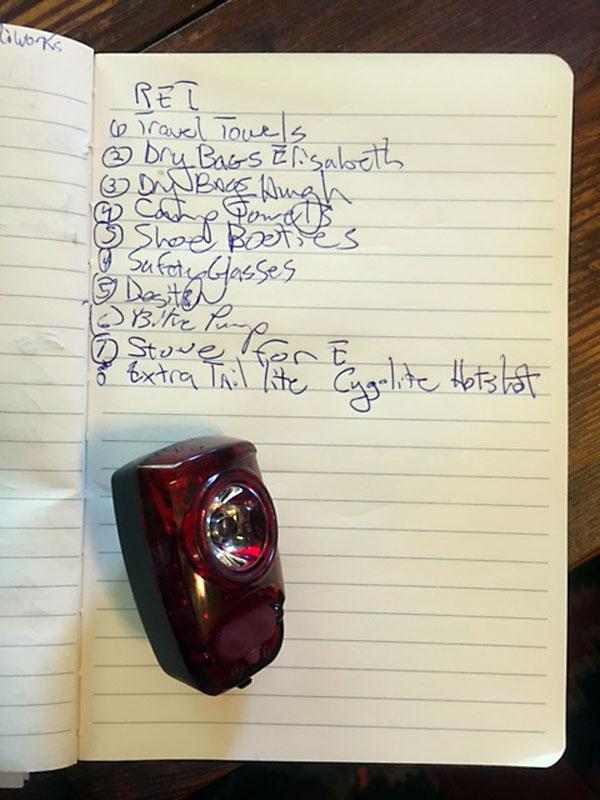 iworks
REI
① Travel Towels
② Dry Bags Elisabeth
③ Dry Bags Hugh
④ Camp
⑤ Shoe Booties
④ Safety Glasses
⑤ Desitin
⑥ Bike Pump
⑦ Stove for E
8 Extra Tail lite Cygolite Hotshot